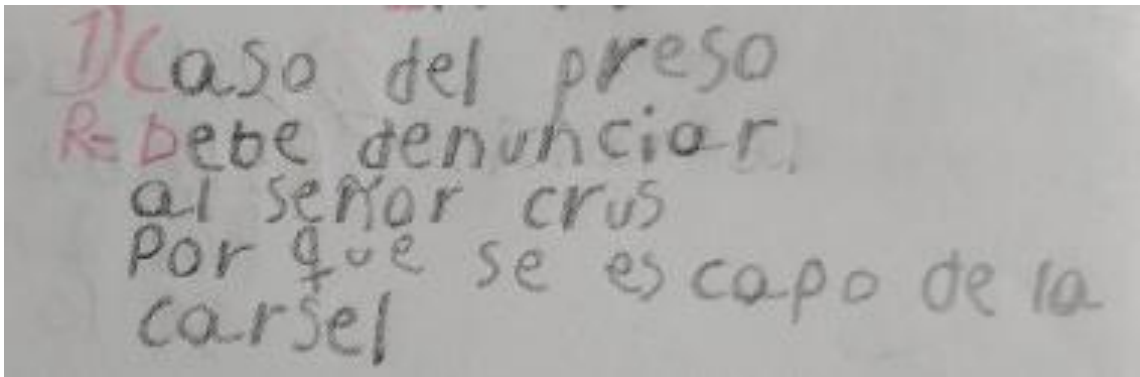 1) Caso del preso
R= Debe denunciar
al señor crus
Por que se es capo de la
carsel